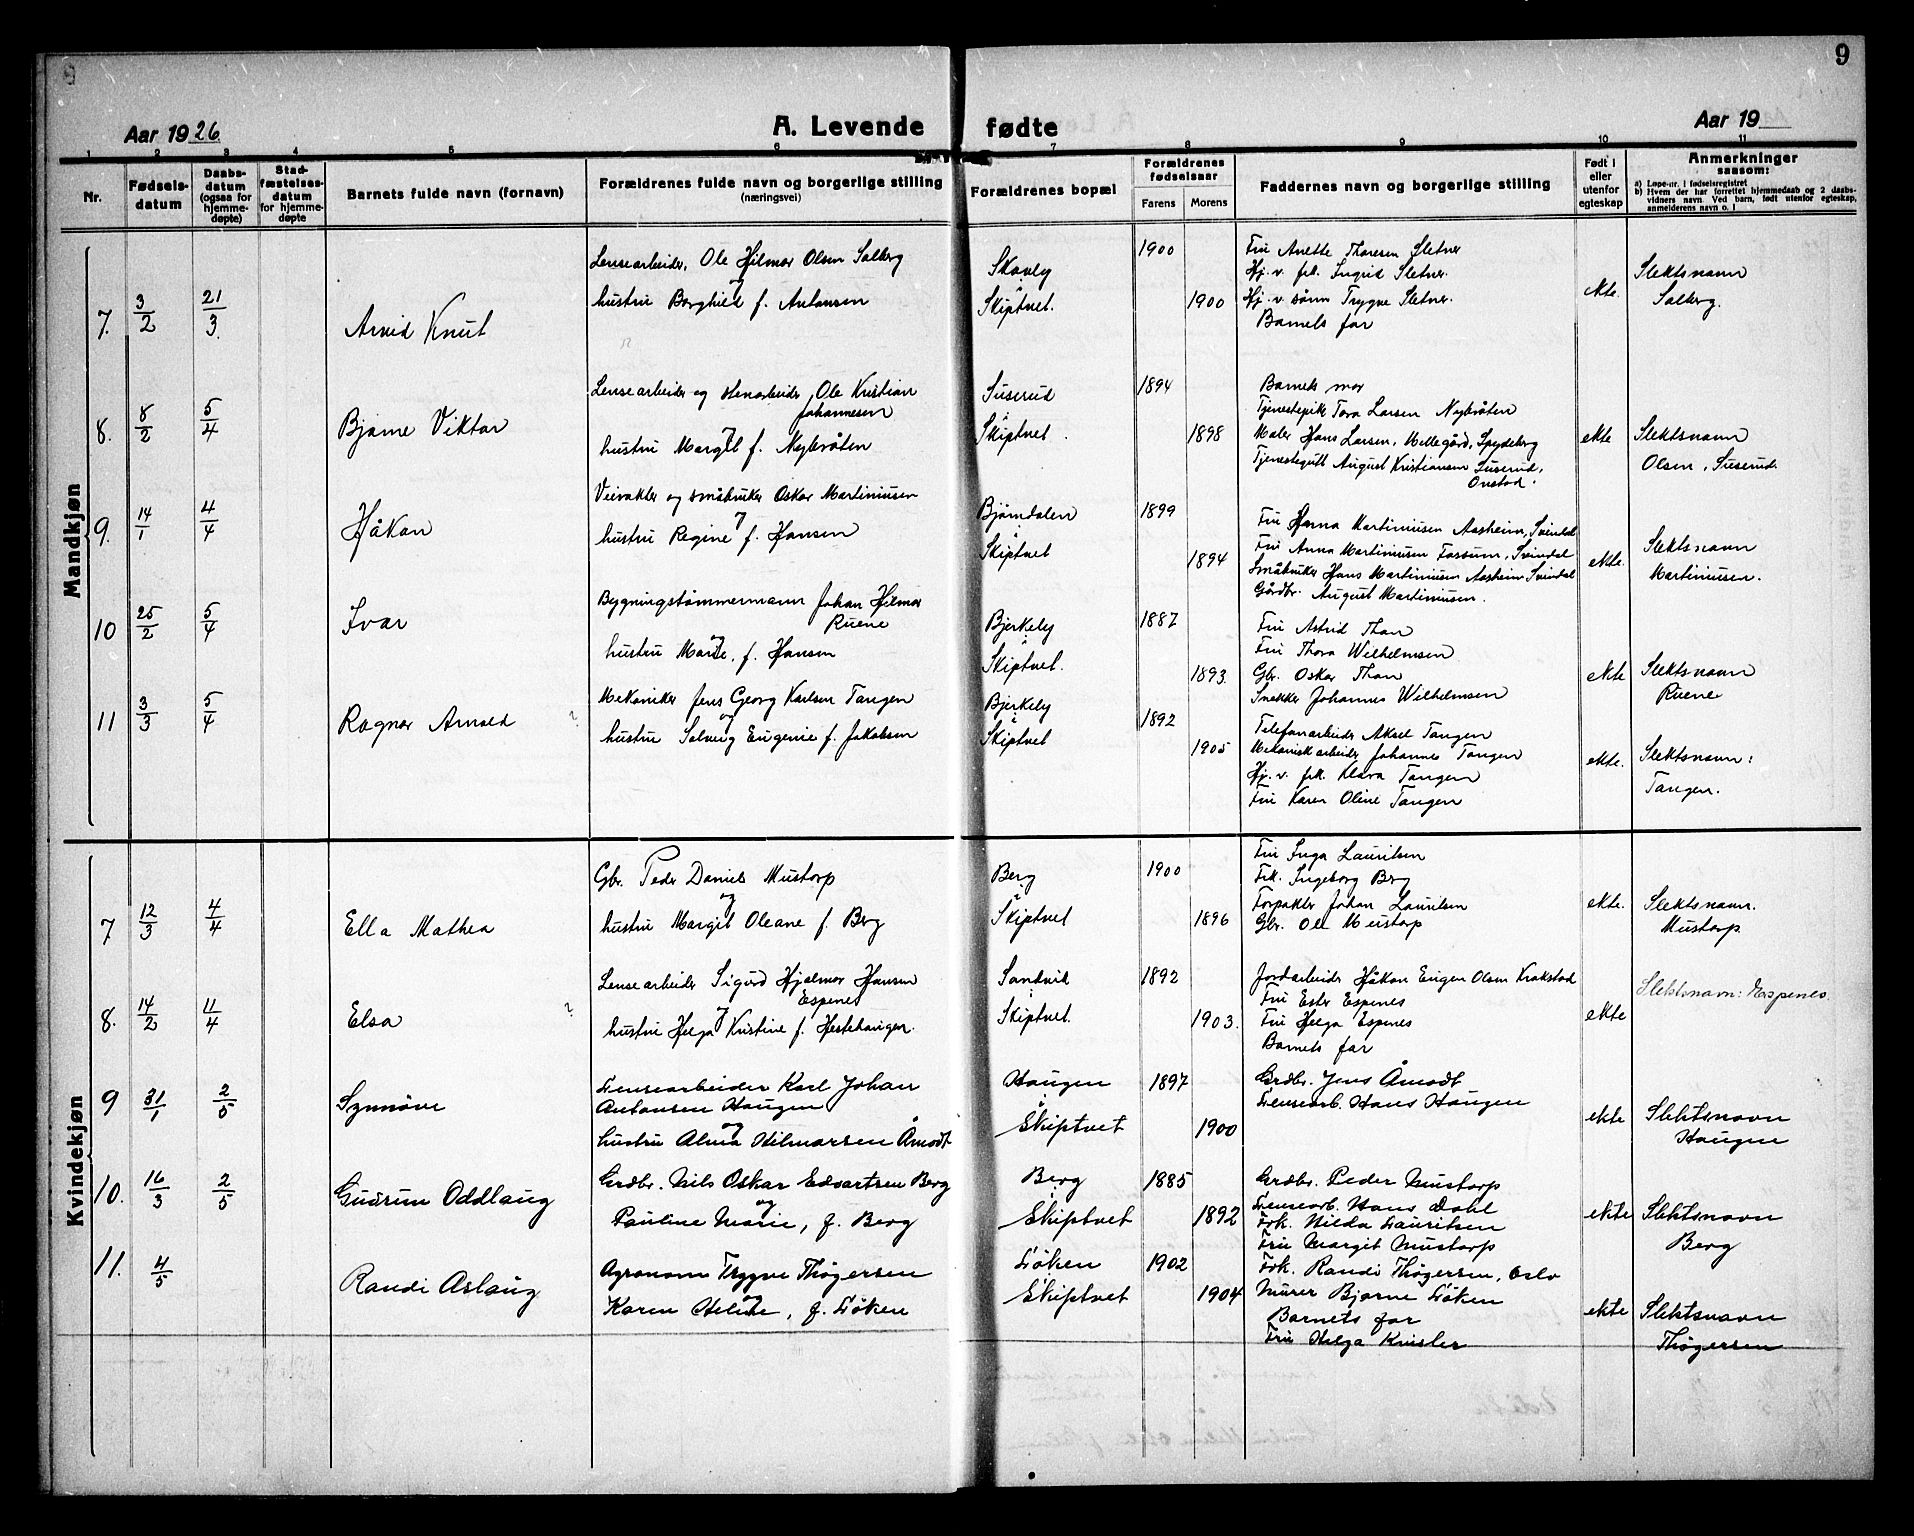 9
Aar 1926
A. Levende fødte
Aar 19
1 2 3 4 5 6 7 8 9 10 11
Nr.
Fødsels-
datum
Daabs-
datum
(ogsaa for
hjemme-
døpte)
Stad-
fæstelses-
datum
for hjemme-
døpte
Barnets fulde navn (fornavn)
Forældrenes fulde navn og borgerlige stilling
(næringsvei)
Forældrenes bopæl
Forældrenes
fødselsaar
Farens Morens
Faddernes navn og borgerlige stilling
Født i
eller
utenfor
egteskap
Anmerkninger
saasom:
a) Løpe-nr. i fødselsregistret
b) Hvem der har forrettet hjemmedaab og 2 daabs-
vidners navn. Ved barn, født utenfor egteskap,
anmelderens navn o. l
Mandkjøn
7. 3/2 21/3. Arvid Knut
Lensearbeider, Ole Hilmar Olsen Solberg
og
hustru Borghild f. Antonsen
Skovly
Skiptvet.
1900
1900
Fru Anette Thoresen Sletner
Hj. v. frk. Ingrid Sletner.
Hj. v. sønn Trygve Sletner.
Barnets far
ekte.
Slektsnavn
Solberg.
8. 8/2 5/4 Bjarne Viktor
Lensearbeider og stenarbeider, Ole Kristian
Johannesen
og
hustru Margit f. Nybråten
Suserud
Skiptvet.
1894
1898
Barnets mor
Tjenestepike Tora Larsen Nybråten
Maler Hans Larsen, Mellegård, Spydeberg
Tjenestegutt August Kristiansen Suserud,
Onstad.
ekte
Slektsnavn
Olsen, Suserud
9. 14/1 4/4 Håkon
Veivokter og småbruker Oskar Martiniusen
og
hustru Regine f. Hansen
Bjørndalen
Skiptvet
1899
1894
Fru Hanna Martiniusen Aasheim, Svindal
Fru Anna Martiniusen Fossum, Svindal
Småbruker Hans Martiniusen Aasheim Svindal
Gårdbr. August Martiniusen.
ekte.
Slektsnavn
Martiniusen.
10 25/2 5/4 Ivar
Bygningstømmermann Johan Hilmar
Ruene
og
hustru Marie, f. Hansen
Bjerkely
Skiptvet.
1887
1893.
Fru Astrid Thon
Fru Thora Wilhelmsen
Gbr. Oskar Thon
Snekker Johannes Wilhelmsen
ekte
Slektsnavn
Ruene
11 3/3 5/4 Ragnar Arnold ?
Mekaniker Jens Georg Karlsen Tangen
og
hustru Solveig Eugenie f. Jakobsen
Bjerkely
Skiptvet
1892
1905
Telefonarbeider Aksel Tangen
Mekanisk arbeider Johannes Tangen
Hj. v. frk. Klara Tangen
Fru Karen Oline Tangen
ekte.
Slektsnavn:
Tangen.
Kvindekjøn
7 12/3 4/4 Ella Mathea
Gbr. Peder Daniels Mustorp
og
hustru Margit Oleane f. Berg
Berg
Skiptvet
1900
1896
Fru Inga Lauritsen
Frk. Ingeborg Berg
Forpakter Johan Lauritsen
Gbr. Ole Mustorp
ekte.
Slektsnavn.
Mustorp.
8. 14/2 11/4 Elsa ?
Lensearbeider Sigurd Hjalmar Hansen
Espenes
og
hustru Helga Kristine f. Hestehaugen
Sandvid
Skiptvet.
1892
1903.
Jordarbeider Håkon Eugen Olsen Krakstad
Fru Ester Espenes
Fru Helga Espenes
Barnets far
ekte
Slektsnavn: Espenes.
9 31/1 2/5 Synnöve
Lensearbeider Karl Johan
Antonsen Haugen
og
hustru Alma Hilmarsen Åmodt
Haugen
Skiptvet
1897
1900
Grdbr. Jens Åmodt
Lensearb. Hans Haugen
ekte
Slektsnavn
Haugen
10. 16/3 2/5 Gudrun Oddlaug
Grdbr. Nils Oskar Edvartsen Berg
og
Pauline Marie, f. Berg
Berg
Skiptvet
1885
1892
Grdbr. Peder Mustorp
Lensearb. Hans Dahl
Frk. Hilda Lauritsen
Fru Margit Mustorp
ekte
Slektsnavn
Berg
11. 4/5 Randi Aslaug
Agronom Trygve Thøgersen
og
Karen Helene, f. Løken
Løken
Skiptvet
1902
1904
Frk. Randi Thøgersen, Oslo
Murer Bjarne Løken
Barnets far
Fru Helga Knisler
ekte
Slektsnavn
Thøgersen